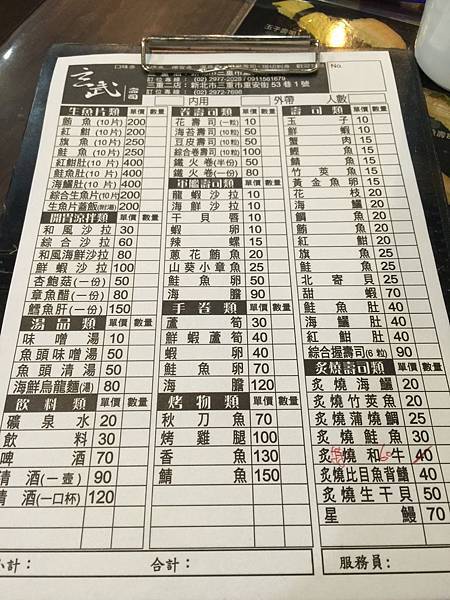 玄武
壽司
No.
訂位專線：(02) 2977-2028 / 0911561679
三重二店：新北市三重市重安街 53 巷 1 號
訂位專線：(02) 2972-7698
內用 外帶 人數
生魚片類 單價 數量
鮪魚(10片) 200
紅魽(10片) 200
旗魚(10片) 200
鮭魚(10片) 200
紅魽肚(10片) 400
鮭魚肚(10片) 400
海鱺肚(10片) 400
綜合生魚片(10片) 200
生魚片蓋飯(附湯) 200
開胃涼拌類 單價 數量
和風沙拉 30
綜合沙拉 60
和風海鮮沙拉 80
鮮蝦沙拉 100
杏鮑菇(一份) 50
章魚醋(一份) 80
鱈魚肝(一份) 150
湯品類 單價 數量
味噌湯 10
魚頭味噌湯 50
魚頭清湯 50
海鮮烏龍麵(湯) 80
飲料類 單價 數量
礦泉水 20
飲料 30
啤酒 70
清酒(一壺) 90
清酒(一口杯) 120
卷壽司類 單價 數量
花壽司(一粒) 10
海苔壽司(10粒) 50
豆皮壽司(10粒) 50
綜合卷壽司(10粒) 50
鐵火卷(半份) 50
鐵火卷(一份) 80
軍艦壽司類 單價 數量
龍蝦沙拉 10
海鮮沙拉 10
干貝唇 10
蝦卵 10
辣螺 15
蔥花鮪魚 20
山葵小章魚 25
鮭魚卵 50
海膽 90
手卷類 單價 數量
蘆筍 30
鮮蝦蘆筍 40
蝦卵 40
鮭魚卵 70
海膽 120
烤物類 單價 數量
秋刀魚 70
烤雞腿 100
香魚 130
鯖魚 150
壽司類 單價 數量
玉子 10
鮮蝦 10
蟹肉 15
鰹魚 15
鯖魚 15
竹筴魚 15
黃金魚卵 15
花枝 20
海鱺 20
鯛魚 20
鮪魚 20
紅魽 20
旗魚 25
鮭魚 25
北寄貝 25
甜蝦 90
鮭魚肚 40
海鱺肚 40
紅魽肚 40
綜合握壽司(6粒) 90
炙燒壽司類 單價 數量
炙燒海鱺 20
炙燒竹筴魚 20
炙燒蒲燒鯛 25
炙燒鮭魚 30
炙燒和牛 40
炙燒比目魚背鰭 40
炙燒生干貝 50
星鰻 70
小計： 合計： 服務員：